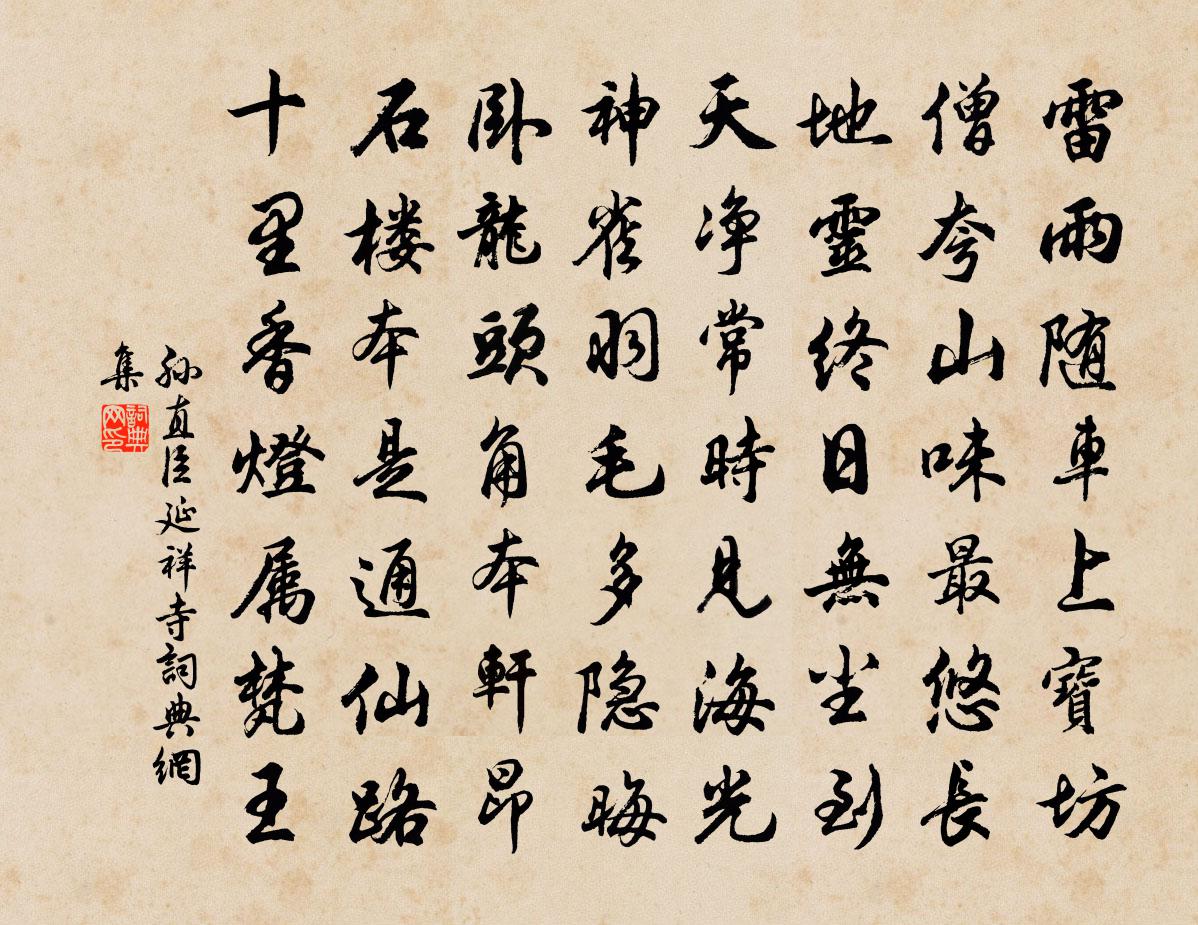 雷雨随車上寶坊
僧夸山味最悠長
地靈終日無尘到
天净常時見海光
神雀羽毛多隐晦
卧龍頭角本軒昂
石楼本是通仙路
十里香燈属梵王
孙直臣延祥寺詞典網
集
詞典
网印